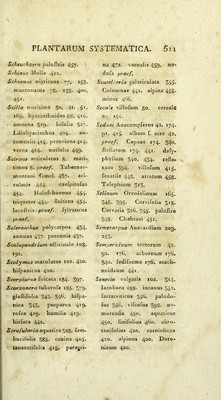 PLANTARUM SYSTEMATICA. 611
Scheuchzeria palustris 459.
Schinus Molle 421.
Schoenus nigricans 77, 258.
mucronatus 78, 258. 400.
451.
Scilla maritima 30, 41, 51,
165. hyacinthoides 28, 414.
amoena 319. bifolia 327.
Liliohyacinthus 404. autumnalis
414. peruviana 414.
verna 414. unifolia 459.
Scirpus articulatus 8. maritimus
8. praef. Tabernaemontani
Gmel. 487. acicularis
454. caespitosus
455. Holoschoenus 455.
triqueter 455. setaceus 455.
lacustris praef. sylvaticus
praef.
Scleranthus polycarpos 454.
annuus 457. perennis 457.
Scolopendrium officinale 108,
191.
Scolymus maculatus 101. 420.
hispanicus 420.
Scorpiurus sulcata 184. 597.
Scorzonera tuberosa 185, 379.
glastifolia 343, 596. hispanica
343. purpurea 419.
rosea 419. humilis 419.
hirsuta 441.
Scrofularia aquatica 328, sambucifolia
585. canina 405.
tanacetifolia 415. peregrina
472. vernalis 459. nodosa
praef.
Scutellaria galericulata 355.
Columnae 441. alpina 458.
minor 466.
Secale villosum 50. cereale
2, 151.
Sedum Anacampseros 42, 174,
91. 415. album f. acre 42,
praef. Cepaea 174, 340.
stellatum 174, 441. dasyphyllum
340, 454. reflexum
392. villosum 415.
sexatile 448. annuum 458.
Telephium 523.
Selinum Oreoselinum 165.
348, 595. Carvifolia 318.
Cervaria 326, 345. palustre
348. Chabraei 451.
Semecarpus Anacardium 209,
253.
Sempervivum tectorum 42.
91, 176. arboreum 176,
340. sediforme 176. arachnoideum
441.
Senecio vulgaris 102, 314.
Jacobaea 188. incanus 351,
sarracenicus 396. paludosus
396. viscosus 396. nemorensis
450. aquaticus
450. linifolius 460. abrotanifolius
420. carniolicus
420. alpinus 420. Doronicum
420.